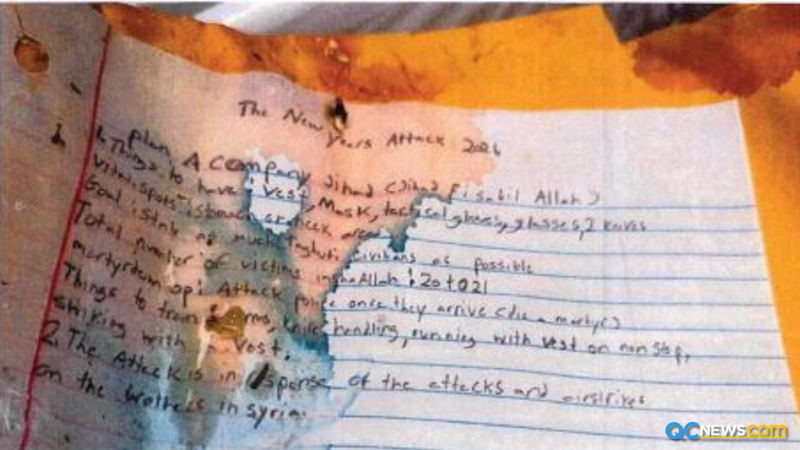 The New Years Attack 2026
plan, A company Jihad (Jihad fi sabil Allah)
1. Things to have : vest, Mask, tactical gloves, glasses, 2 knives
Vital spots : stomach or neck area
Goal : stab as much civilians as possible
Total number of victims inshaAllah : 20 to 21
martyrdom op: Attack police once they arrive (die a martyr)
Things to train : knife handling, running with vest on non stop,
striking with a vest.
2. The Attack is in of the attacks and airstrikes
on the brothers in syria.
QCNEWS.com